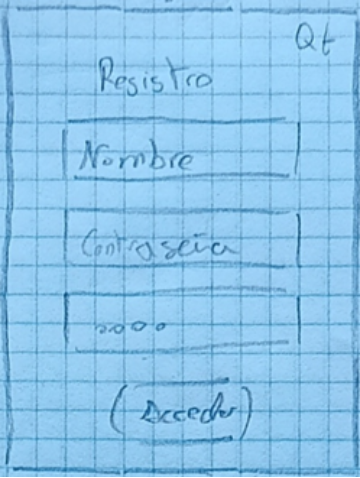 Qt
Registro
Nombre
Contraseña
oooo
Acceder